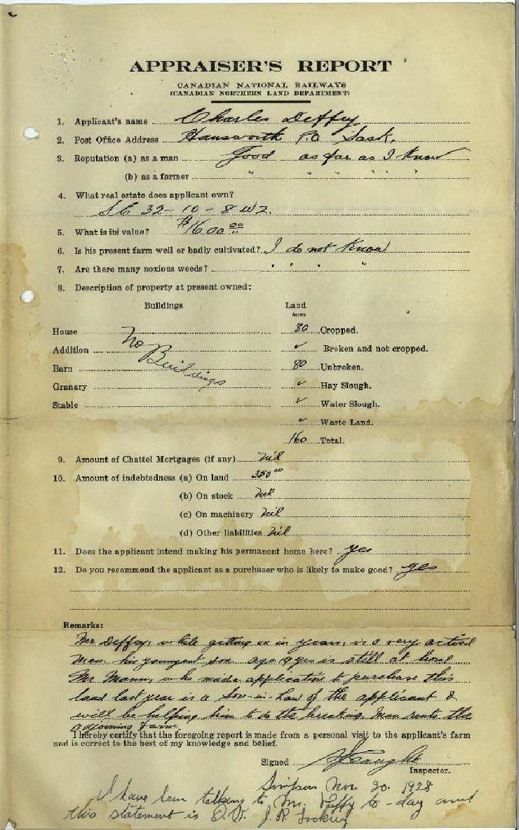 APPRAISER'S REPORT
CANADIAN NATIONAL RAILWAYS
(CANADIAN NORTHERN LAND DEPARTMENT)
1. Applicant's name Charles Deffey
2. Post Office Address P.O Sask.
3. Reputation (a) as a man Good as far as I know
(b) as a farmer " " " " "
4. What real estate does applicant own?
S.E 32-10-8 W2.
5. What is its value? $1600.00
6. Is his present farm well or badly cultivated? I do not know
7. Are there many noxious weeds? " " " "
8. Description of property at present owned:
Buildings Land
Acres
House No Buildings 80 Cropped.
Addition ✓ Broken and not cropped.
Barn 80 Unbroken.
Granary ✓ Hay Slough.
Stable ✓ Water Slough.
✓ Waste Land.
160 Total.
9. Amount of Chattel Mortgages (if any) Nil
10. Amount of indebtedness (a) On land 350.00
(b) On stock Nil
(c) On machinery Nil
(d) Other liabilities Nil
11. Does the applicant intend making his permanent home here? yes
12. Do you recommend the applicant as a purchaser who is likely to make good? yes
Remarks:
Mr. Deffey, while getting on in years, is a very active
man, his youngest son age 19 yrs is still at home
Mr. Mann, who made application to purchase this
land last year is a Son-in-Law of the applicant &
will be helping him to do the breaking. Mann rents the
adjoining farm
I hereby certify that the foregoing report is made from a personal visit to the applicant's farm
and is correct to the best of my knowledge and belief.
Signed
Inspector.
Nov 20. 1928
I have been talking to Mr. Deffey to-day and
this statement is J.R.